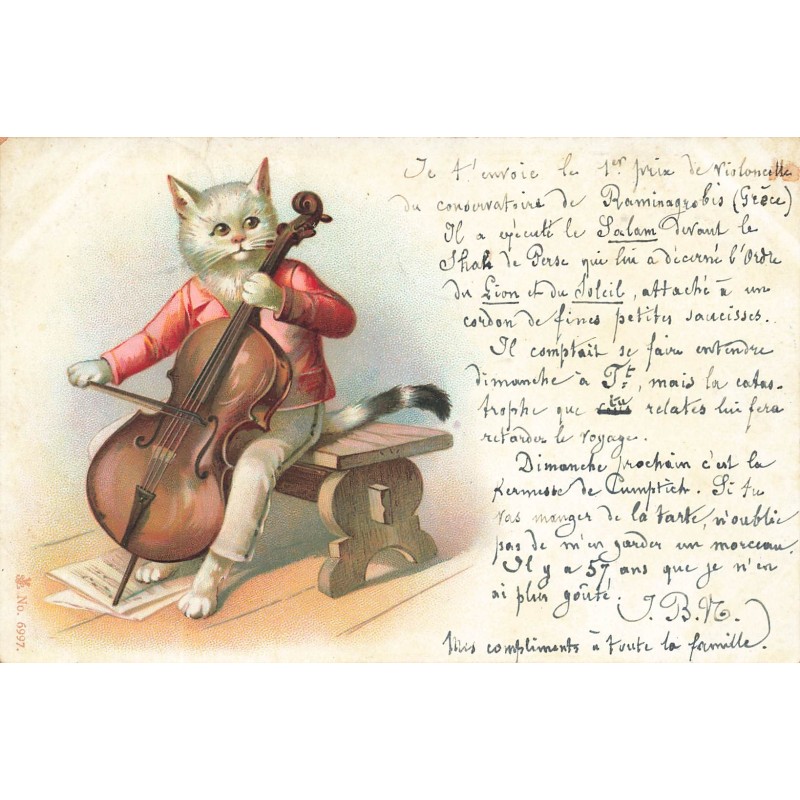 Je t'envoie le 1er prix de violoncelle
du conservatoire de Raminagrobis (Grèce)
Il a exécuté le Salam devant le
Shah de Perse qui lui a décerné l'Ordre
du Lion et du Soleil, attaché à un
cordon de fines petites saucisses.
Il comptait se faire entendre
dimanche à Tt., mais la catas-
trophe que tu relates lui fera
retarder le voyage.
Dimanche prochain c'est la
Kermesse de Cumptich. Si tu
vas manger de la tarte, n'oublie
pas de m'en garder un morceau.
Il y a 57 ans que je n'en
ai plus goûté. J. B. N.
Mes compliments à toute la famille.
No. 6997.